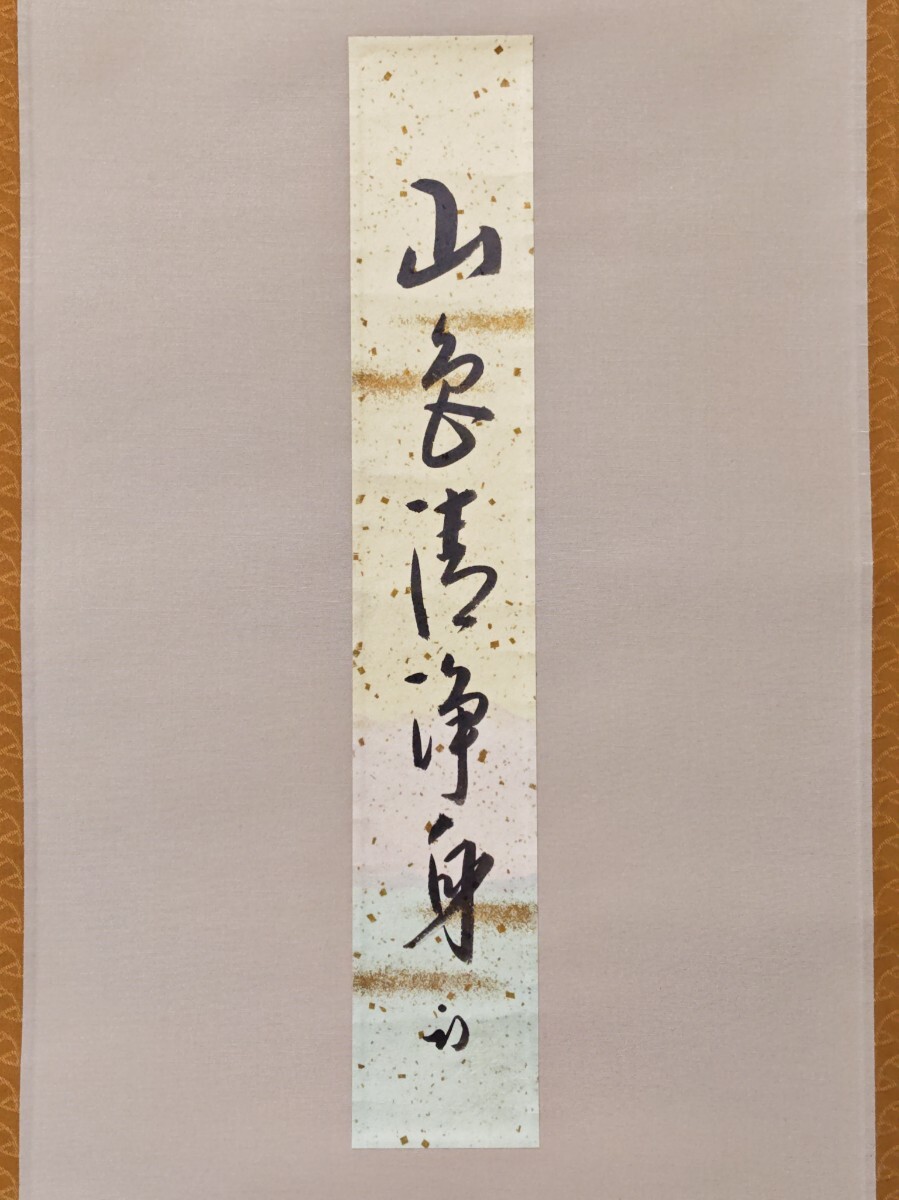 山色清浄身